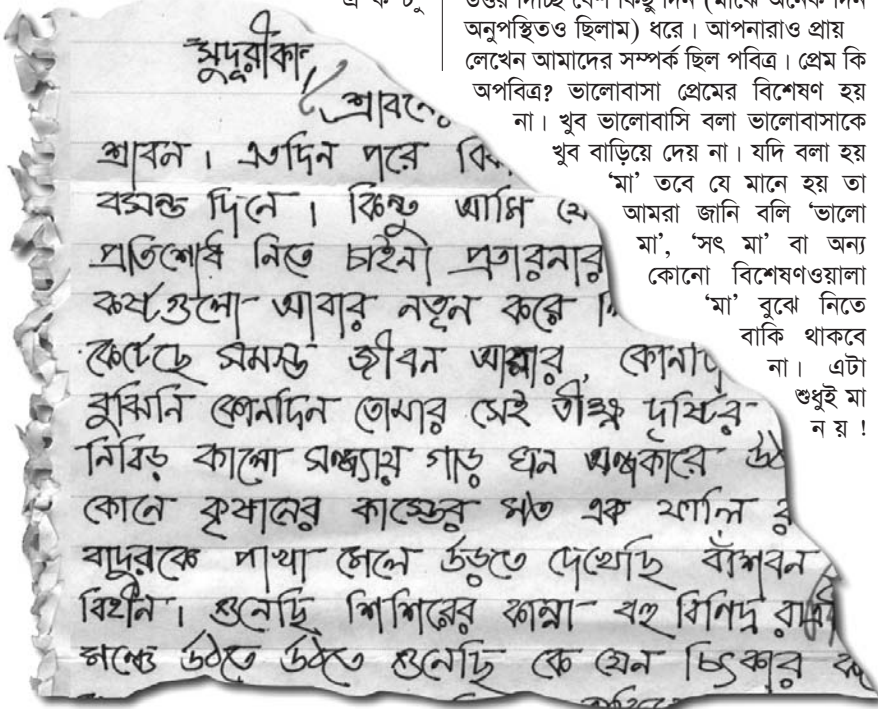 উত্তর দিচ্ছি বেশ কিছু দিন (মাঝে অনেক দিন
অনুপস্থিতও ছিলাম) ধরে। আপনারাও প্রায়
লেখেন আমাদের সম্পর্ক ছিল পবিত্র। প্রেম কি
অপবিত্র? ভালোবাসা প্রেমের বিশেষণ হয়
না। খুব ভালোবাসি বলা ভালোবাসাকে
খুব বাড়িয়ে দেয় না। যদি বলা হয়
‘মা’ তবে যে মানে হয় তা
আমরা জানি বলি ‘ভালো
মা’, ‘সৎ মা’ বা অন্য
কোনো বিশেষণওয়ালা
‘মা’ বুঝে নিতে
বাকি থাকবে
না। এটা
শুধুই মা
ন য় !
সুদূরীকা,
শ্রাবনের
শ্রাবন। এতদিন পরে
বসন্ত দিনে। কিন্তু আমি
প্রতিশোধ নিতে চাইনা প্রতারনার
কষ্টগুলো আবার নতুন করে
কেটেছে সমস্ত জীবন আমার,
বুঝিনি কোনদিন তোমার সেই তীক্ষ্ণ দৃষ্টির
নিবিড় কালো সন্ধ্যায় গাঢ় ঘন অন্ধকারে
কোনে কৃষানের কাস্তের মত এক ফালি
বাদুরকে পাখা মেলে উড়তে দেখেছি বাঁশবন
বিহীন। শুনেছি শিশিরের কান্না বহু বিনিদ্র রাত্রী
মঞ্চে উঠতে উঠতে শুনেছি কে যেন চিৎকার